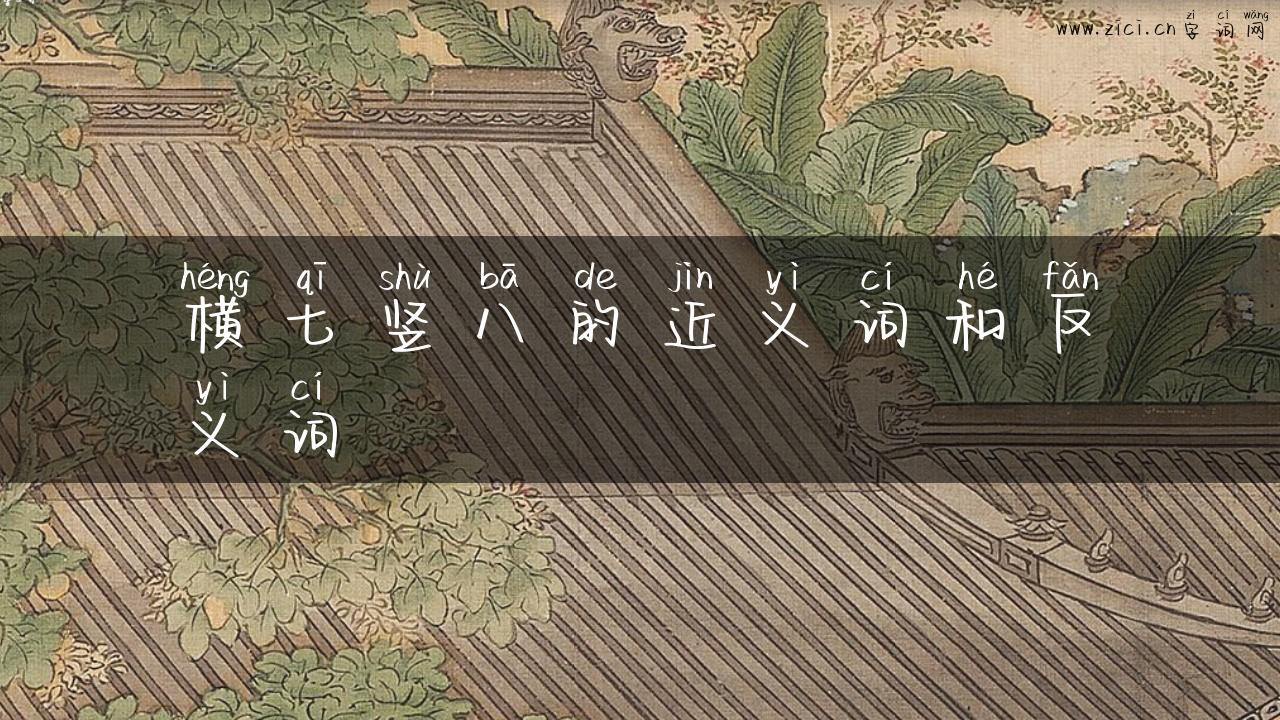 zì cí wǎng
www.zici.cn 字 词 网
héng qī shù bā de jìn yì cí hé fǎn
横 七 竖 八 的 近 义 词 和 反
yì cí
义 词